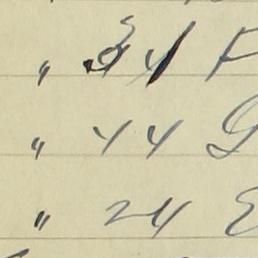 " 34 F
" 44 G
" 24 E